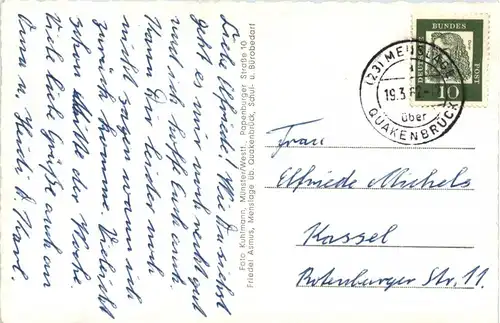 Liebe Elfriede! Wie Du siehst
geht es mir noch recht gut
und ich hoffe Euch auch.
Kann Dir leider noch
nicht sagen wann ich
zurück komme. Vielleicht
schon Mitte der Woche.
Viele liebe Grüße auch an
Oma u. Heidi d. Karl.
Foto Kuhlmann, Münster/Westf., Papenburger Straße 10
Friedel Asmus, Menslage üb. Quakenbrück, Schul- u. Bürobedarf
DEUTSCHE
BUNDES
POST
10
(23) MENSLAGE
19.3.6
über
QUAKENBRÜCK
Frau
Elfriede Michels
Kassel
Rotenburger Str. 11.